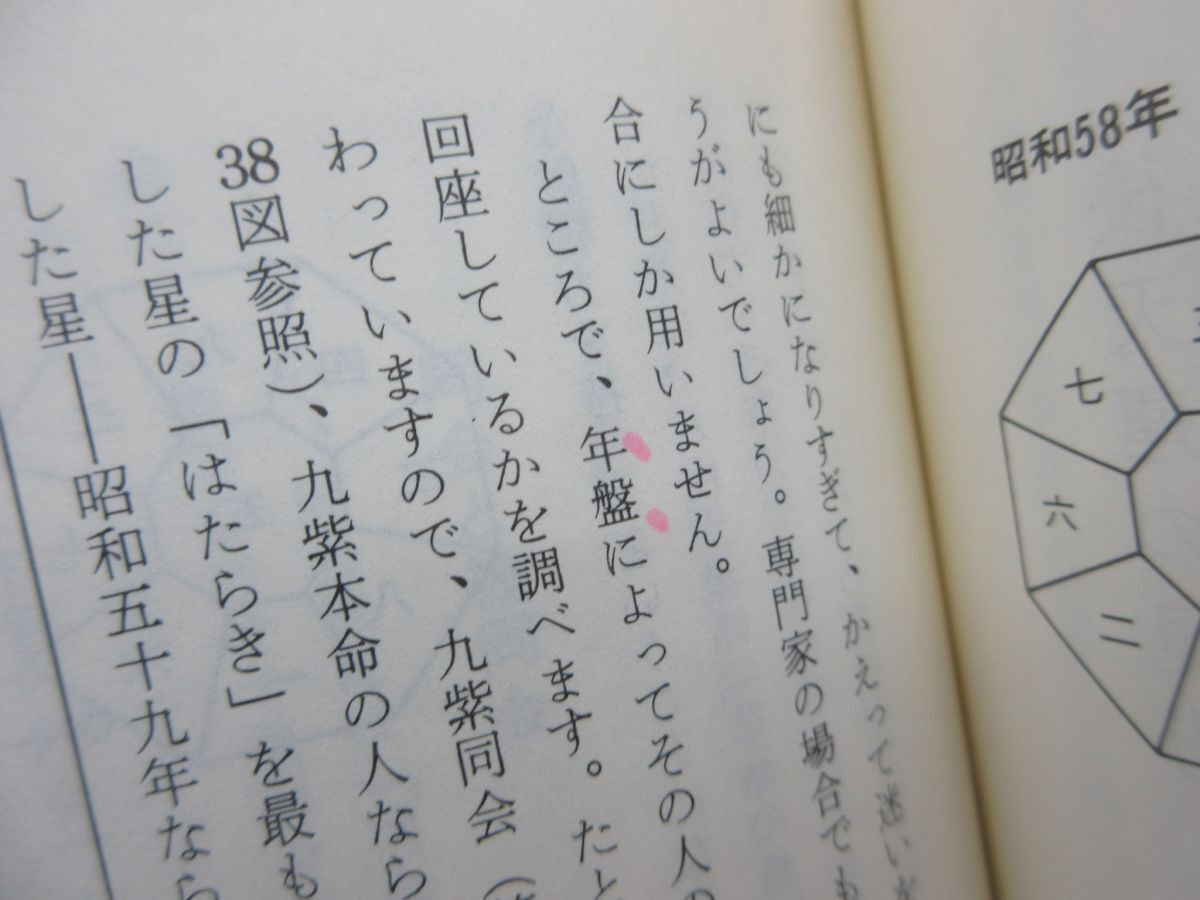 昭和58年
七
六
二
にも細かになりすぎて、かえって迷い
うがよいでしょう。専門家の場合でも
合にしか用いません。
ところで、年盤によってその人の
回座しているかを調べます。たと
わっていますので、九紫同会（
38図参照）、九紫本命の人なら
した星の「はたらき」を最も
した星——昭和五十九年なら